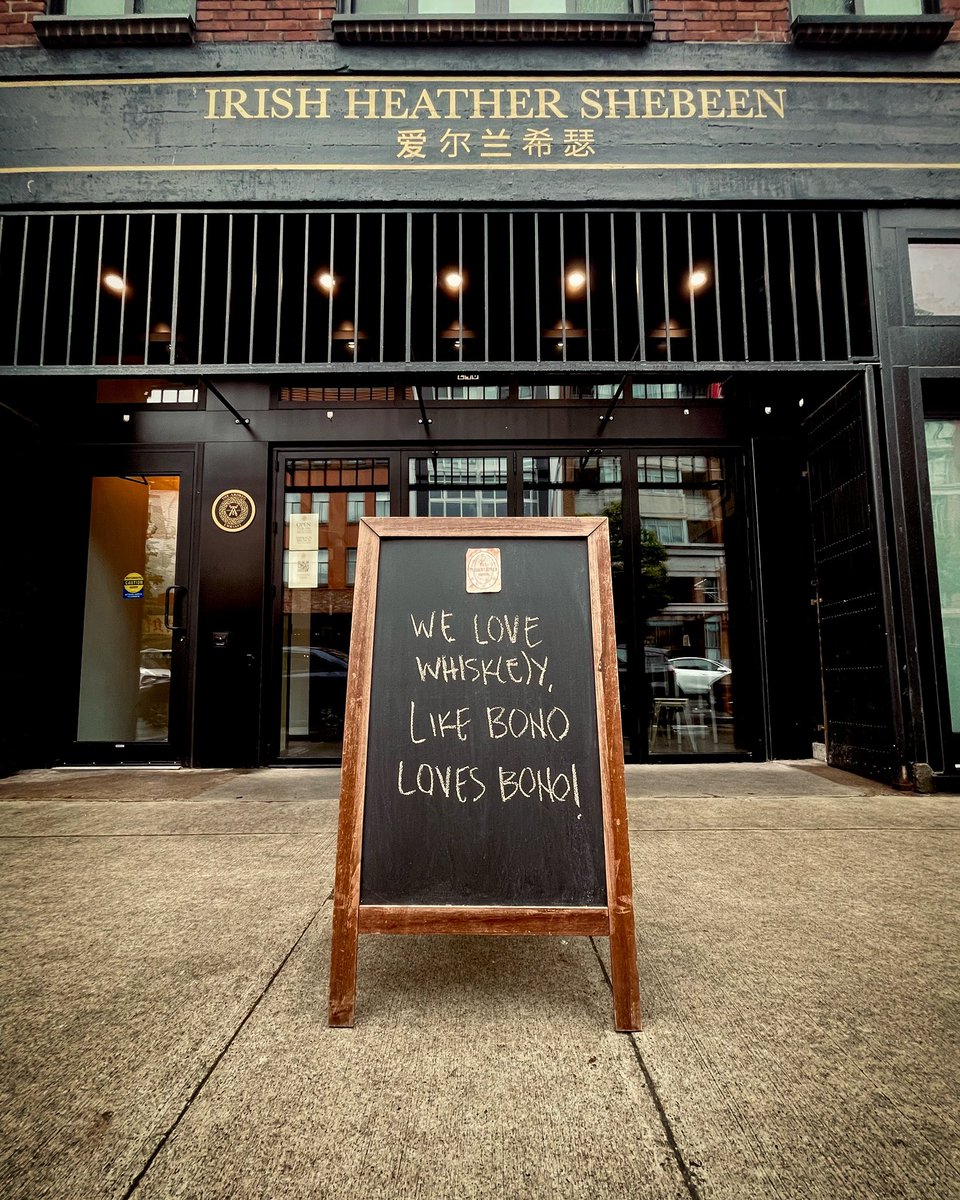 IRISH HEATHER SHEBEEN
爱尔兰希瑟
OPEN
CAUTION
WE LOVE
WHISK(E)Y,
LIKE BONO
LOVES BONO!